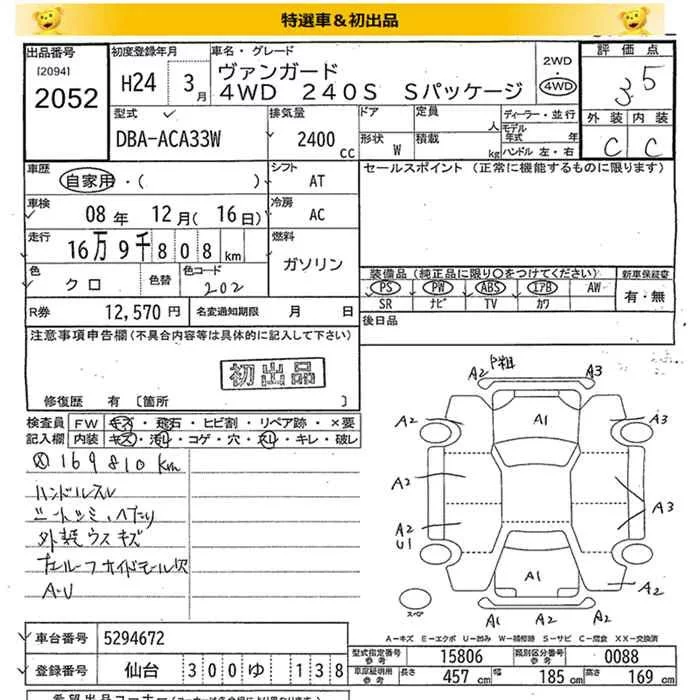 特選車＆初出品
出品番号
[2094]
2052
初度登録年月
H24 3月
車名・グレード
ヴァンガード
4WD 240S Sパッケージ
2WD
・
4WD
評価点
3.5
外装 内装
C C
型式
DBA-ACA33W
排気量
2400 cc
ドア
形状 W
定員 人
積載 kg
ディーラー・並行
モデル年式 年
ハンドル 左・右
車歴
自家用・( )
シフト
AT
セールスポイント (正常に機能するものに限ります)
車検
08年 12月(16日)
冷房
AC
走行
16万9千808km
燃料
ガソリン
色
クロ
色替
色コード
202
装備品(純正品に限り○をつけてください)
新車保証書
PS PW ABS エアB AW
SR ナビ TV カワ
有・無
R券 12,570円
名変通知期限 月 日
後日品
注意事項申告欄(不具合内容等は具体的に記入して下さい)
初出品
修復歴 有 [箇所 ]
検査員記入欄
FW キズ・飛石・ヒビ割・リペア跡・×要
内装 キズ・汚レ・コゲ・穴・スレ・キレ・破レ
169810km
ハンドルスレ
シートシミ、ヘたり
外装ウスキズ
A・U
A2 A3
A2 A1 A3
A2 A3
A2
U1
A1 A2
A1 A2 A2
スペア
A-キズ E-エクボ U-凹み W-補修跡 S-サビ C-腐食 XX-交換済
車台番号 5294672
登録番号 仙台 300 ゆ 138
型式指定番号 参考 15806
類別区分番号 参考 0088
車庫証明用 参考 長さ 457 cm 幅 185 cm 高さ 169 cm